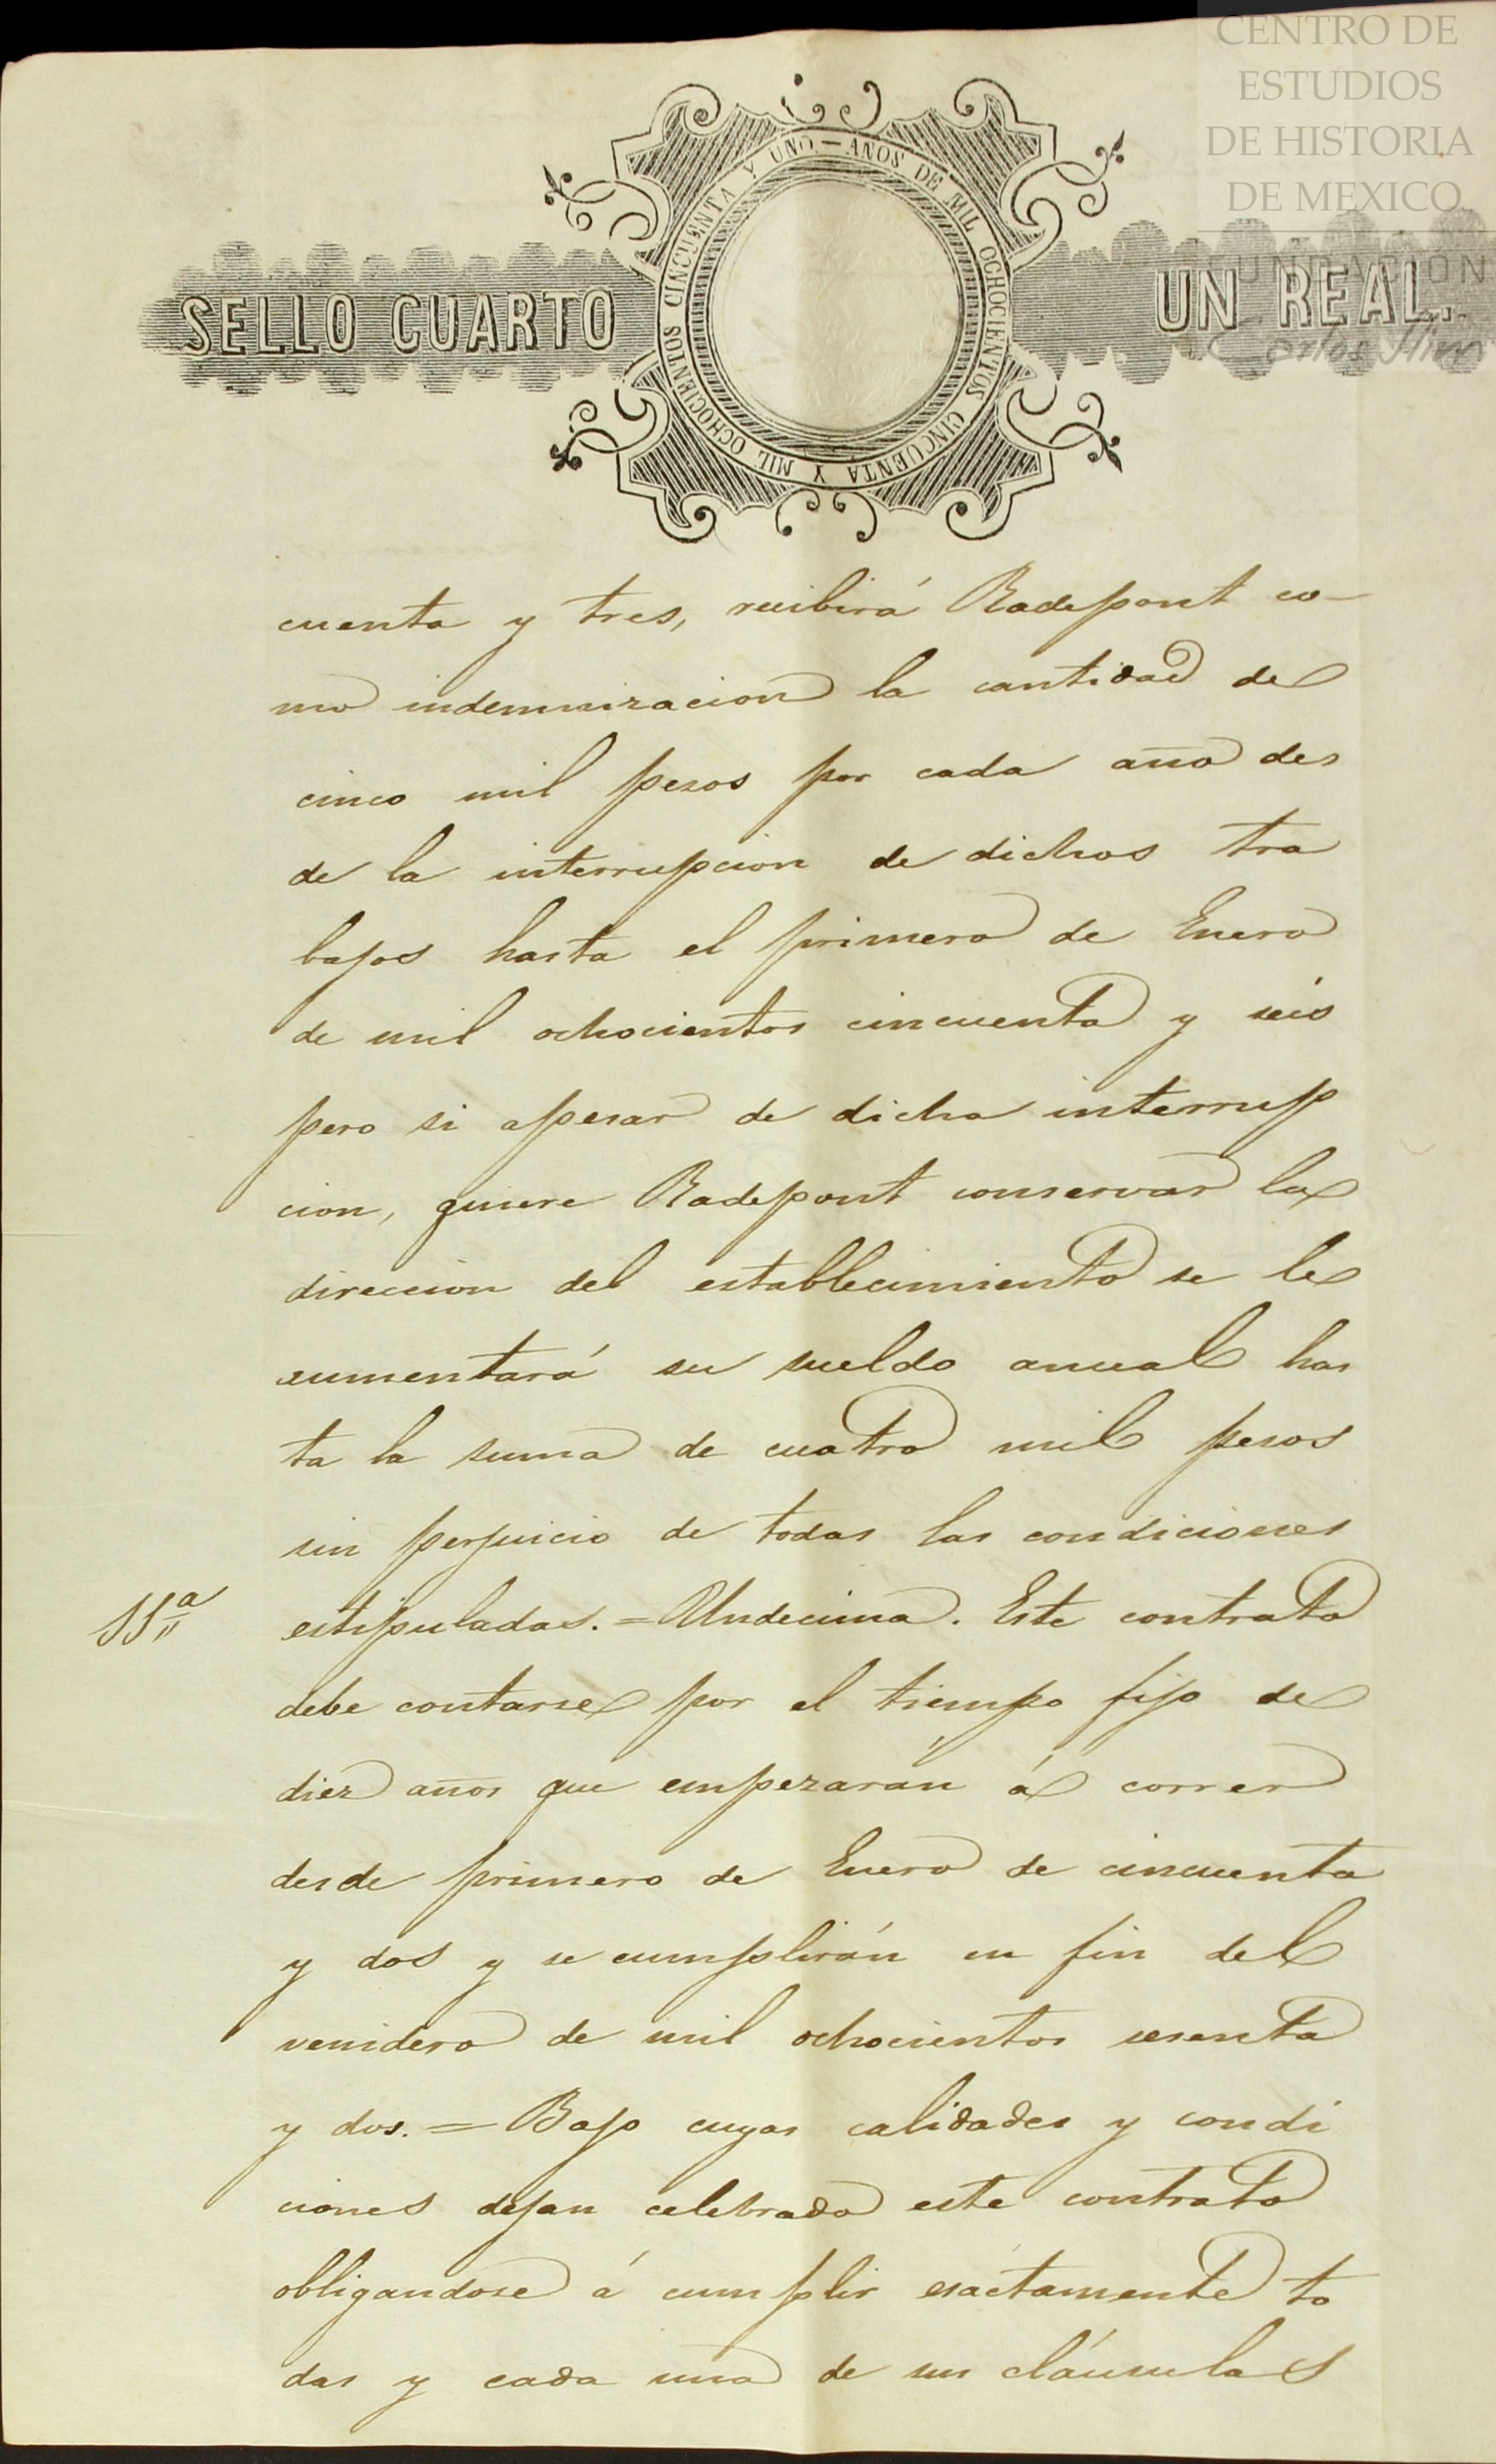 CENTRO DE
ESTUDIOS
DE HISTORIA
DE MEXICO
FUNDACIÓN
Carlos Slim
SELLO CUARTO
UN REAL.
AÑOS DE MIL OCHOCIENTOS CINCUENTA Y MIL OCHOCIENTOS CINCUENTA Y UNO.—
cuenta y tres, recibirá Radepont co-
mo indemnizacion la cantidad de
cinco mil pesos por cada año des
de la interrupcion de dichos tra
bajos hasta el primero de Enero
de mil ochocientos cincuenta y seis
pero si apesar de dicha interrup
cion, quiere Radepont conservar la
direccion del establecimiento se le
aumentará su sueldo anual has
ta la suma de cuatro mil pesos
sin perjuicio de todas las condiciones
11ª
estipuladas. = Undecima. Este contrato
debe contarse por el tiempo fijo de
diez años que empezarán á correr
desde primero de Enero de cincuenta
y dos y se cumplirán en fin del
venidero de mil ochocientos sesenta
y dos. = Bajo cuyas calidades y condi
ciones dejan celebrado este contrato
obligandose á cumplir esáctamente to
das y cada una de sus cláusulas